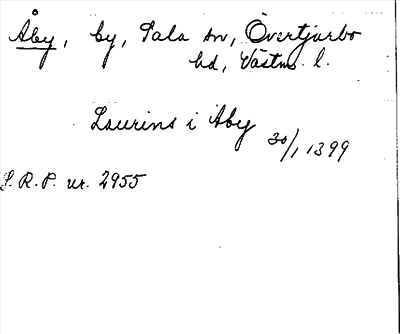 Åby, by, Sala sn, Övertjurbo
hd, Västm. l.
Laurins i Aby
30/1 1399
S.R.P. nr. 2955